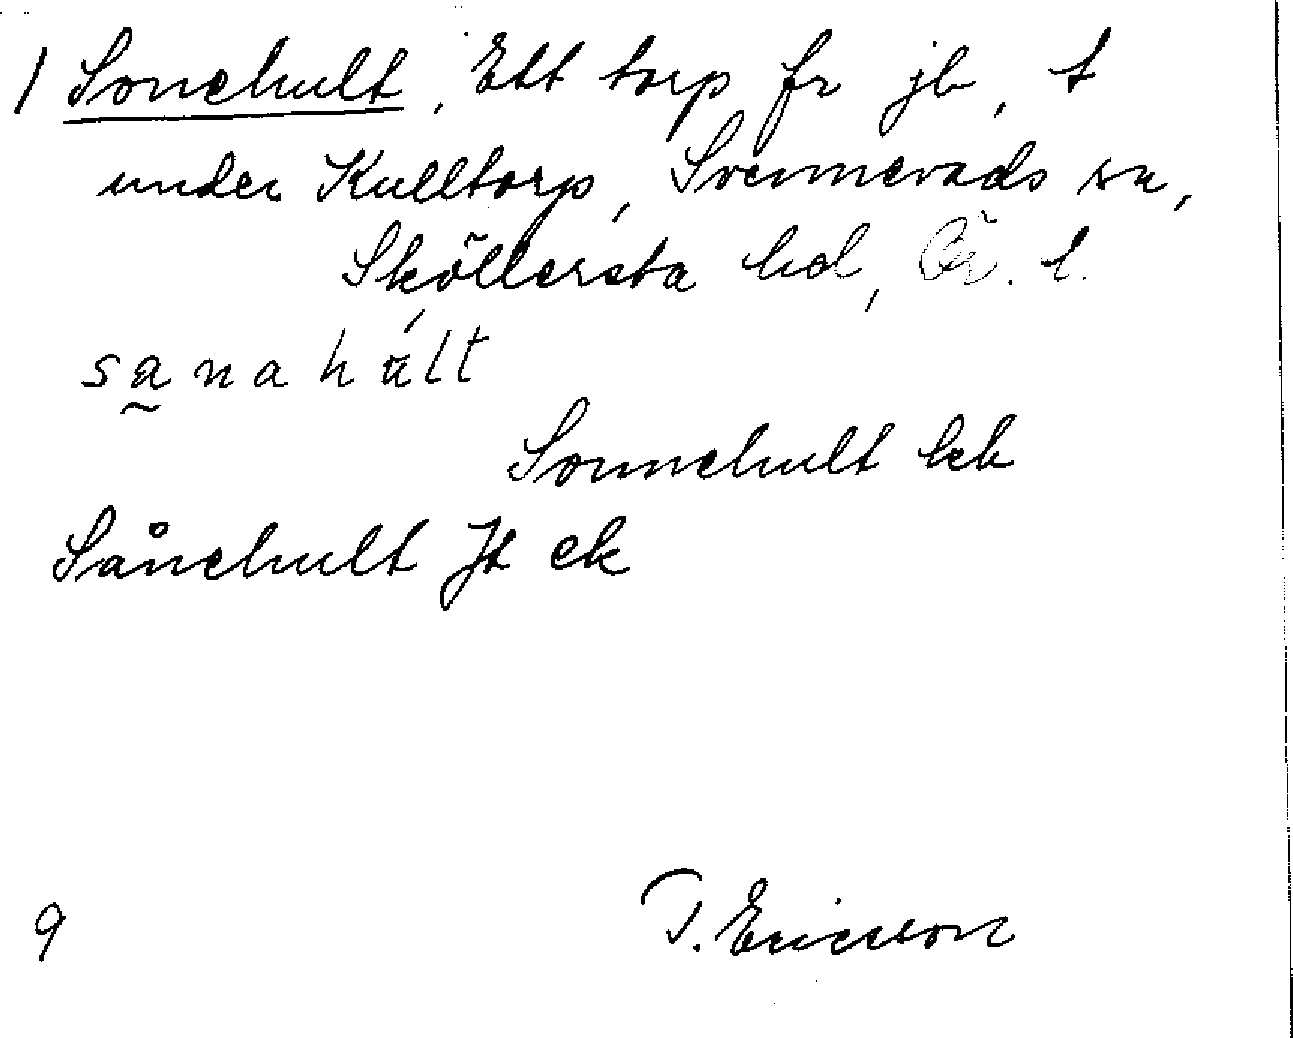 1 Sonehult, Ett torp fr jb, t
under Kulltorp, Svennevads sn,
Sköllersta hd, Ör. l.
sa̰nahùlt
Sonnehult hk
Sånehult Jt ek
9 T. Ericsson